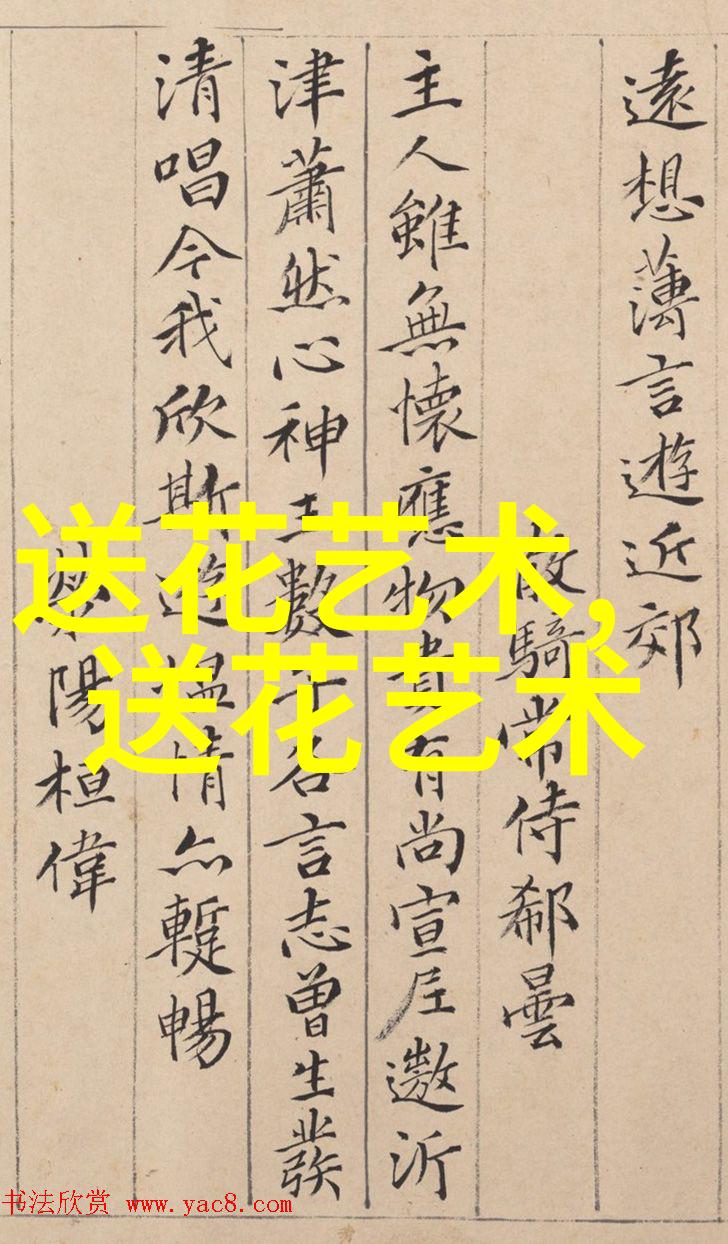 遠想薄言遊近郊
散騎常侍郗曇
主人雖無懷應物貴有尚宣尼遨沂
津蕭然心神王數子各言志曾生發
清唱今我欣斯遊慍情亦暫暢
滎陽桓偉
送花艺术,
送花艺术
书法欣赏 www.yac8.com